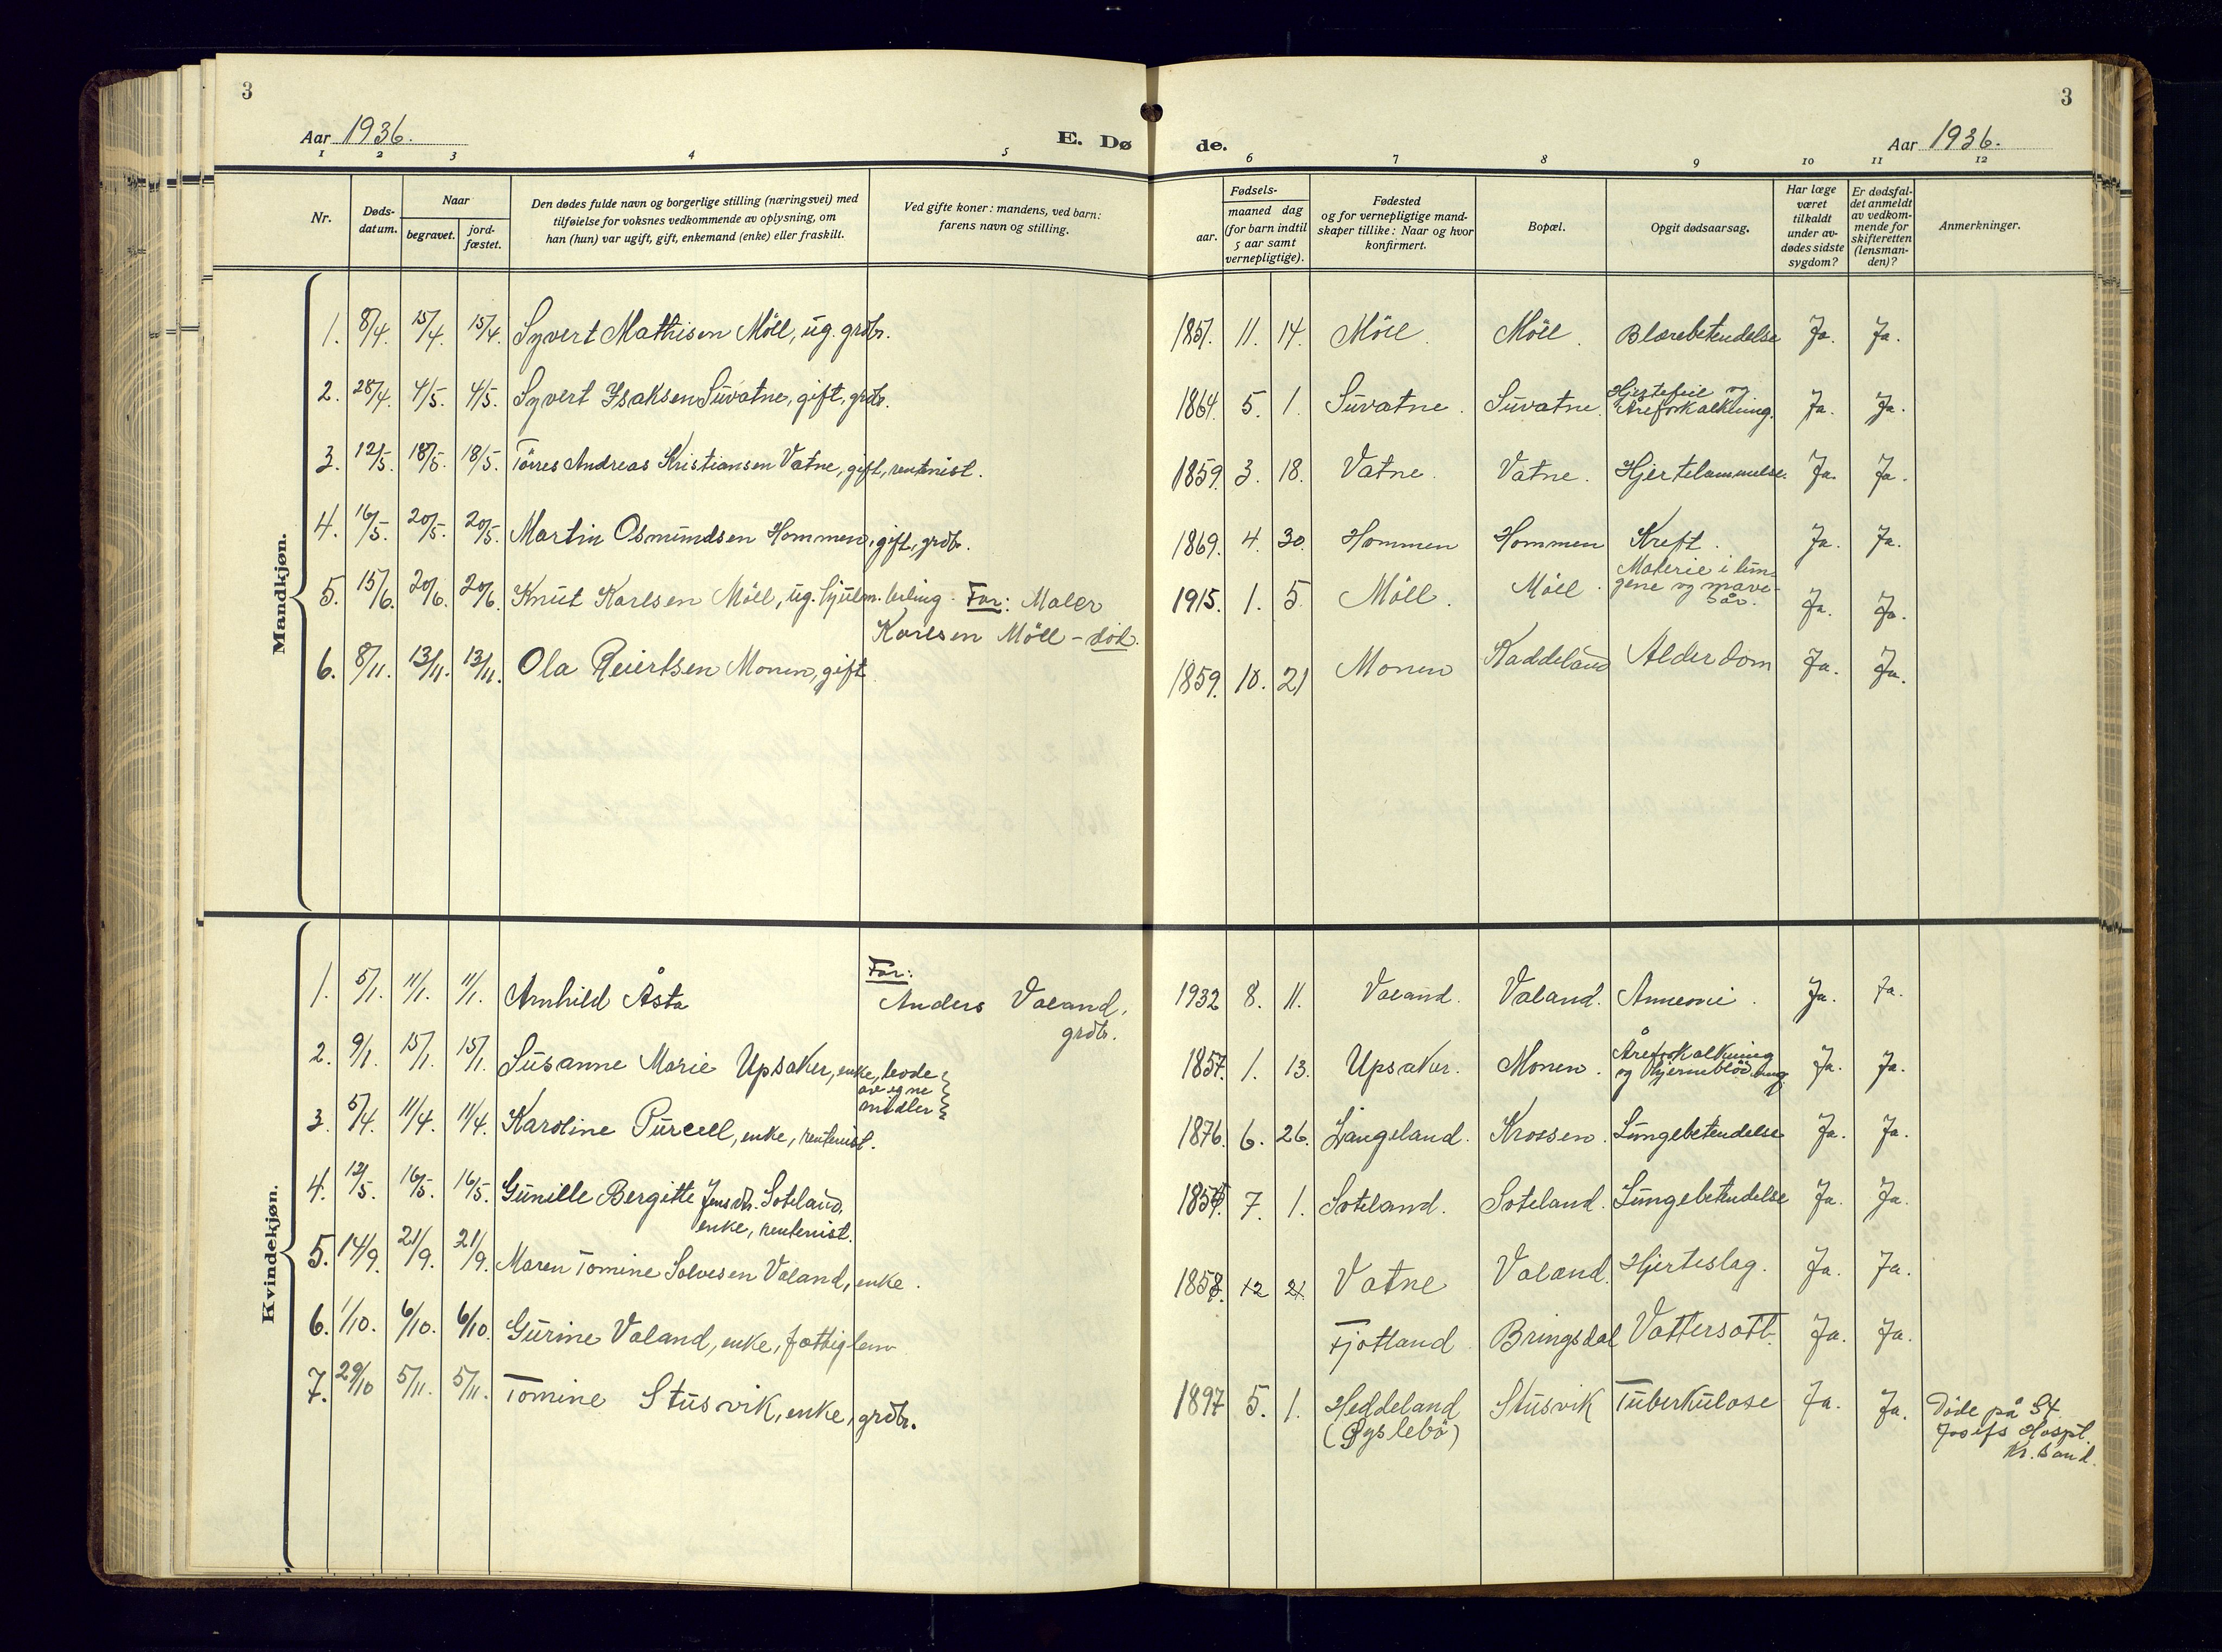 3
3
Aar 1936.
E. Dø
de.
Aar 1936.
1 2 3 4 5 6 7 8 9 10 11 12
Nr.
Døds-
datum.
Naar
begravet.
jord-
fæstet.
Den dødes fulde navn og borgerlige stilling (næringsvei) med
tilføielse for voksnes vedkommende av oplysning, om
han (hun) var ugift, gift, enkemand (enke) eller fraskilt.
Ved gifte koner: mandens, ved barn:
farens navn og stilling.
aar.
Fødsels-
maaned dag
(for barn indtil
5 aar samt
vernepligtige).
Fødested
og for vernepligtige mand-
skaper tillike: Naar og hvor
konfirmert.
Bopæl.
Opgit dødsaarsag.
Har læge
været
tilkaldt
under av-
dødes sidste
sygdom?
Er dødsfal-
det anmeldt
av vedkom-
mende for
skifteretten
(lensman-
den)?
Anmerkninger.
Mandkjøn.
1. 8/4. 15/4. 15/4. Syvert Mathisen Möll, ug. grdbr. 1857. 11. 14. Möll. Möll. Blærebetendelse Ja. Ja.
2. 28/4. 4/5. 4/5. Syvert Isaksen Suvatne, gift, grdbr. 1864. 5. 1. Suvatne. Suvatne. Hjertefeil og
Åreforkalkning. Ja. Ja.
3. 12/5. 18/5. 18/5. Törres Andreas Kristiansen Vatne, gift, rentenist. 1859. 3. 18. Vatne. Vatne. Hjertelammelse. Ja. Ja.
4. 16/5. 20/5. 20/5. Martin Osmundsen Hommen, gift, grdbr. 1869. 4. 30. Hommen Hommen Kreft. Ja. Ja.
5. 15/6. 20/6. 20/6. Knut Karlsen Möll, ug. hjulm. Far: Maler 1915. 1. 5 Möll. Möll. Materie i lun-
gene og mave-
sår. Ja. Ja.
Karlsen Möll - död.
6. 8/11. 13/11. 13/11. Ola Reiertsen Monen, gift 1859. 10. 21 Monen Kaddeland Alderdom Ja. Ja.
Kvindekjøn.
1. 5/1. 11/1. 11/1. Arnhild Åsta Far:
Anders Valand, 1932 8. 11. Valand. Valand. Annemi. Ja. Ja.
grdbr.
2. 9/1. 15/1. 15/1. Susanne Marie Upsaker, enke, levde
av egne
midler 1857. 1. 13. Upsaker. Monen. Åreforkalkning
og hjerneblödning Ja. Ja.
3. 5/4. 11/4. 11/4. Karoline Purcell, enke, rentenist. 1876. 6. 26. Langeland. Krossen. Lungebetendelse Ja. Ja.
4. 12/5. 16/5. 16/5. Gunille Bergitte Jensdtr. Soteland, 7. 1. Soteland. Soteland. Lungebetendelse Ja. Ja.
enke, rentenist.
5. 14/9. 21/9. 21/9. Maren Tomine Solvesen Valand, enke. 1858. 12 21. Vatne Valand. Hjerteslag. Ja. Ja.
6. 1/10. 6/10. 6/10. Gurine Valand, enke, fattiglem Fjotland Bringsdal Vattersott. Ja. Ja.
7. 29/10 5/11. 5/11. Tomine Stusvik, enke, grdbr. 1897 5. 1. Heddeland
(Øyslebö) Stusvik Tuberkulose Ja. Ja. Döde på St.
Josefs Hospt.
Kr. Sand.